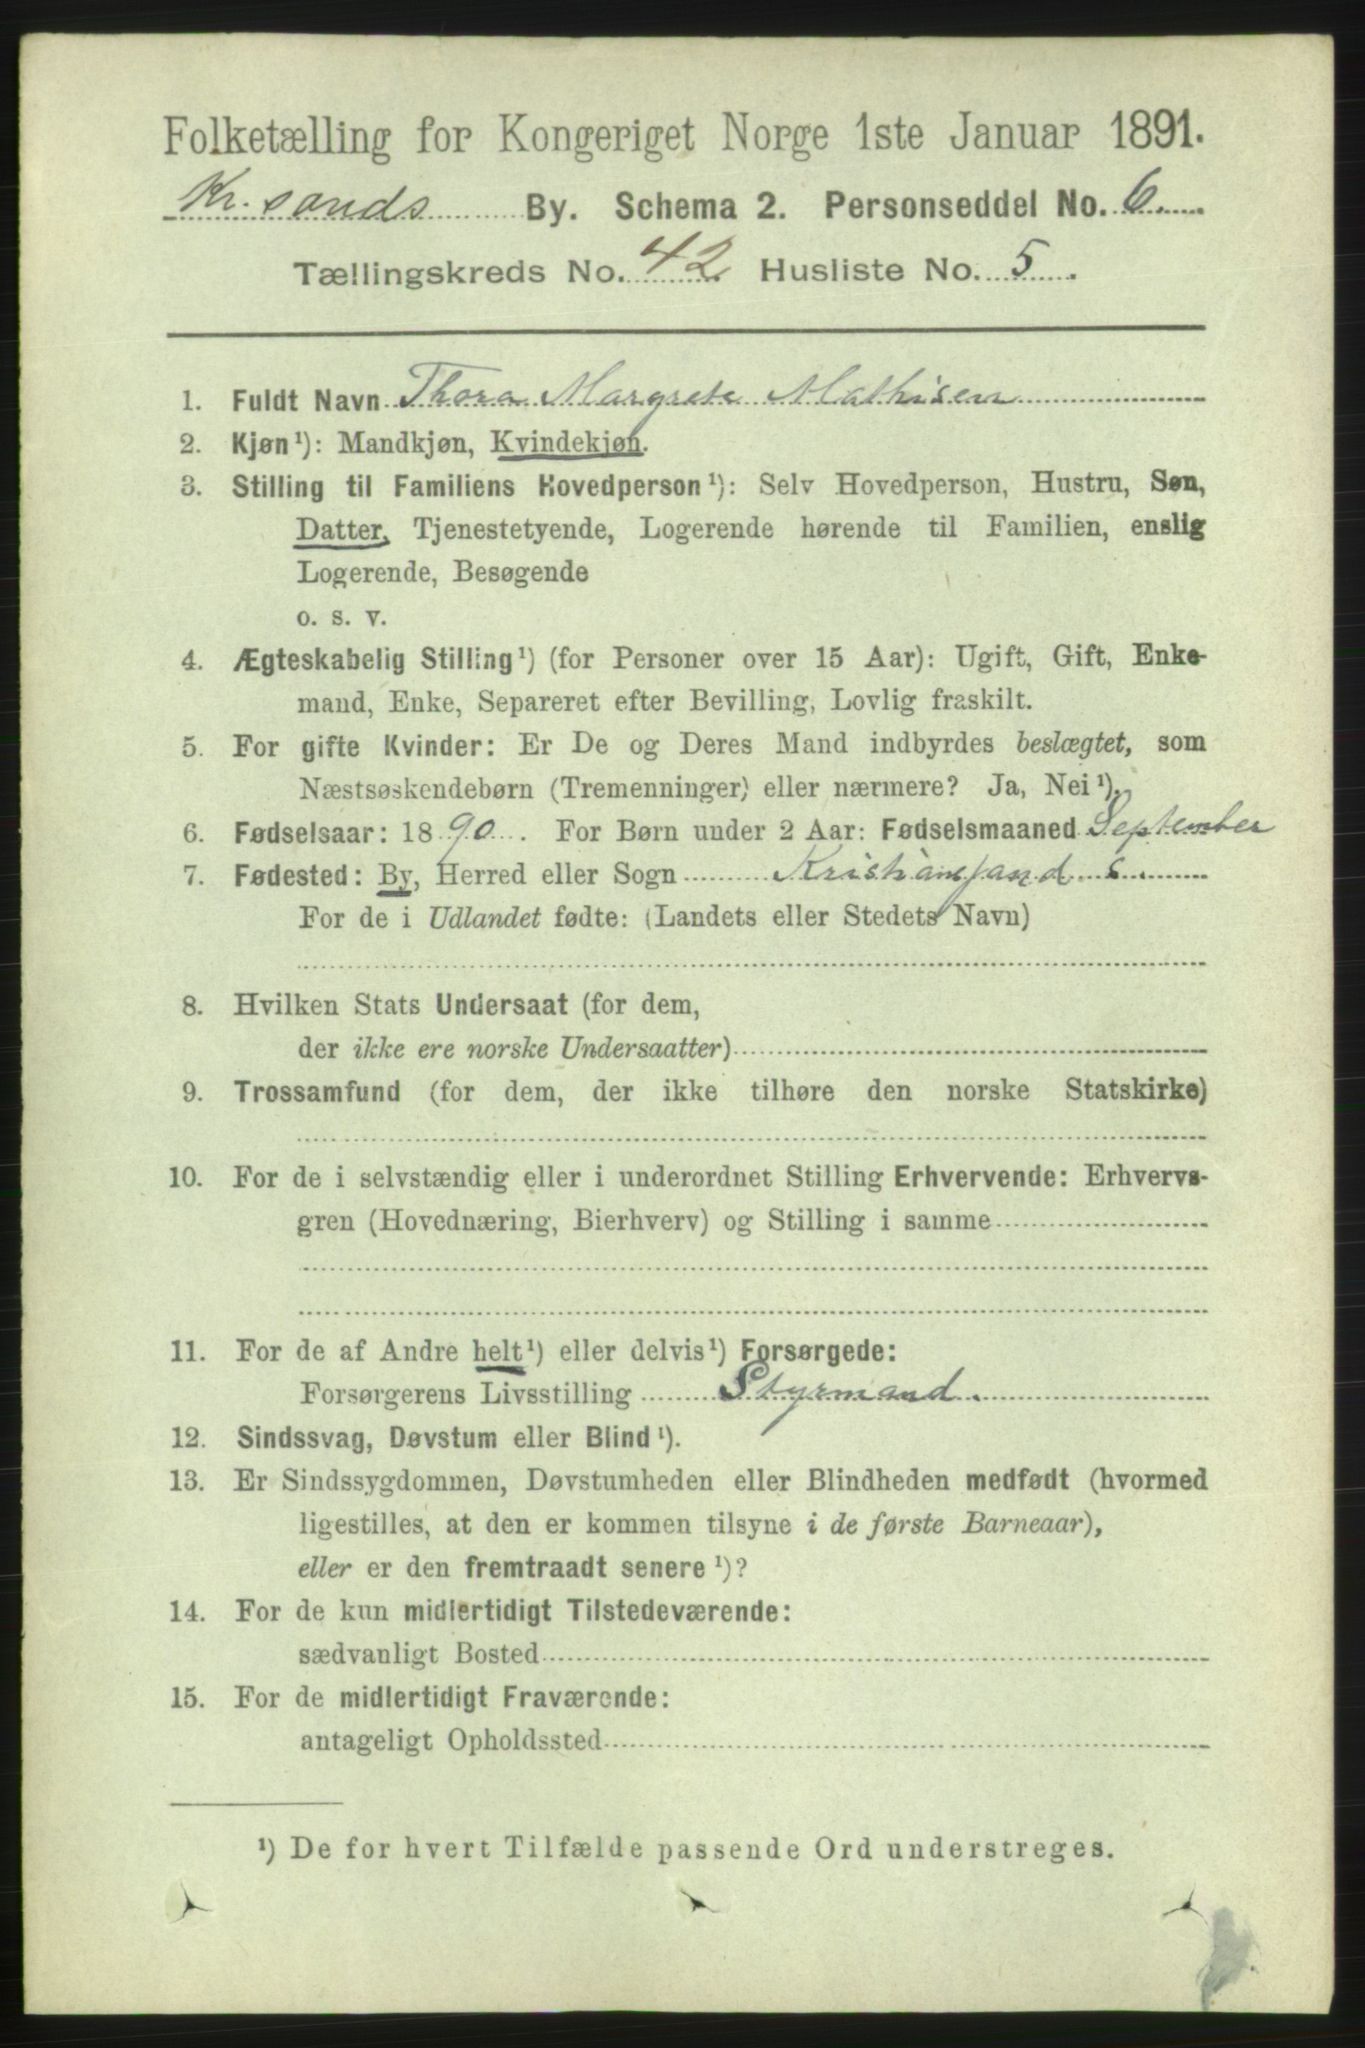 Folketælling for Kongeriget Norge 1ste Januar 1891.
Kr.sands By. Schema 2. Personseddel No. 6.
Tællingskreds No. 42 Husliste No. 5.
1. Fuldt Navn Thora Margrete Mathisen
2. Kjøn¹): Mandkjøn, Kvindekjøn.
3. Stilling til Familiens Hovedperson¹): Selv Hovedperson, Hustru, Søn,
Datter, Tjenestetyende, Logerende hørende til Familien, enslig
Logerende, Besøgende
o. s. v.
4. Ægteskabelig Stilling¹) (for Personer over 15 Aar): Ugift, Gift, Enke-
mand, Enke, Separeret efter Bevilling, Lovlig fraskilt.
5. For gifte Kvinder: Er De og Deres Mand indbyrdes beslægtet, som
Næstsøskendebørn (Tremenninger) eller nærmere? Ja, Nei¹).
6. Fødselsaar: 1890. For Børn under 2 Aar: Fødselsmaaned September
7. Fødested: By, Herred eller Sogn Kristiansand s.
For de i Udlandet fødte: (Landets eller Stedets Navn)
8. Hvilken Stats Undersaat (for dem,
der ikke ere norske Undersaatter)
9. Trossamfund (for dem, der ikke tilhøre den norske Statskirke)
10. For de i selvstændig eller i underordnet Stilling Erhvervende: Erhvervs-
gren (Hovednæring, Bierhverv) og Stilling i samme
11. For de af Andre helt¹) eller delvis¹) Forsørgede:
Forsørgerens Livsstilling Styrmand.
12. Sindssvag, Døvstum eller Blind¹).
13. Er Sindssygdommen, Døvstumheden eller Blindheden medfødt (hvormed
ligestilles, at den er kommen tilsyne i de første Barneaar),
eller er den fremtraadt senere¹)?
14. For de kun midlertidigt Tilstedeværende:
sædvanligt Bosted
15. For de midlertidigt Fraværende:
antageligt Opholdssted
¹) De for hvert Tilfælde passende Ord understreges.